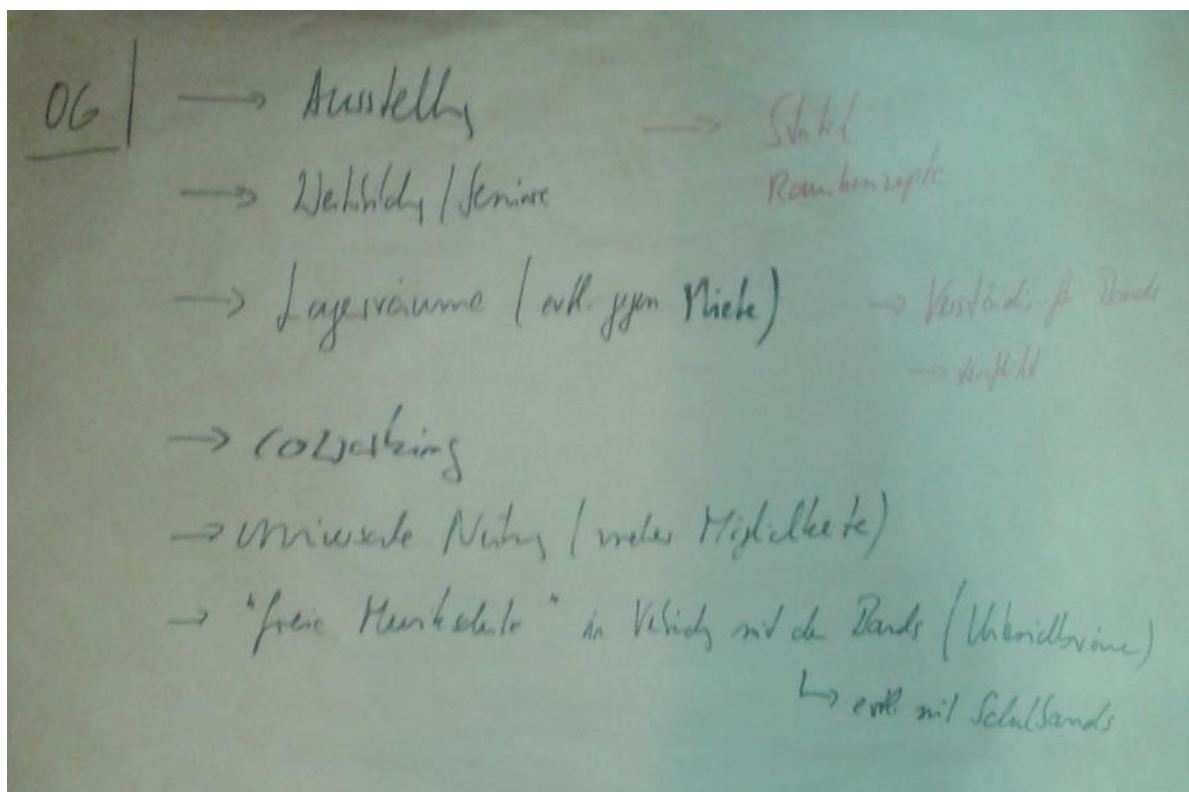 OG → Ausstellung
→ Statik
Raumkonzepte
→ Weiterbildung / Seminare
→ Lagerräume (evtl. gegen Miete)
→ Verständn. für Bands
→ CoWorking
→ universale Nutzung (weitere Möglichkeiten)
→ "freie Musikschule" in Verbindg mit den Bands (Unterrichtsräume)
↳ evtl. mit Schulbands